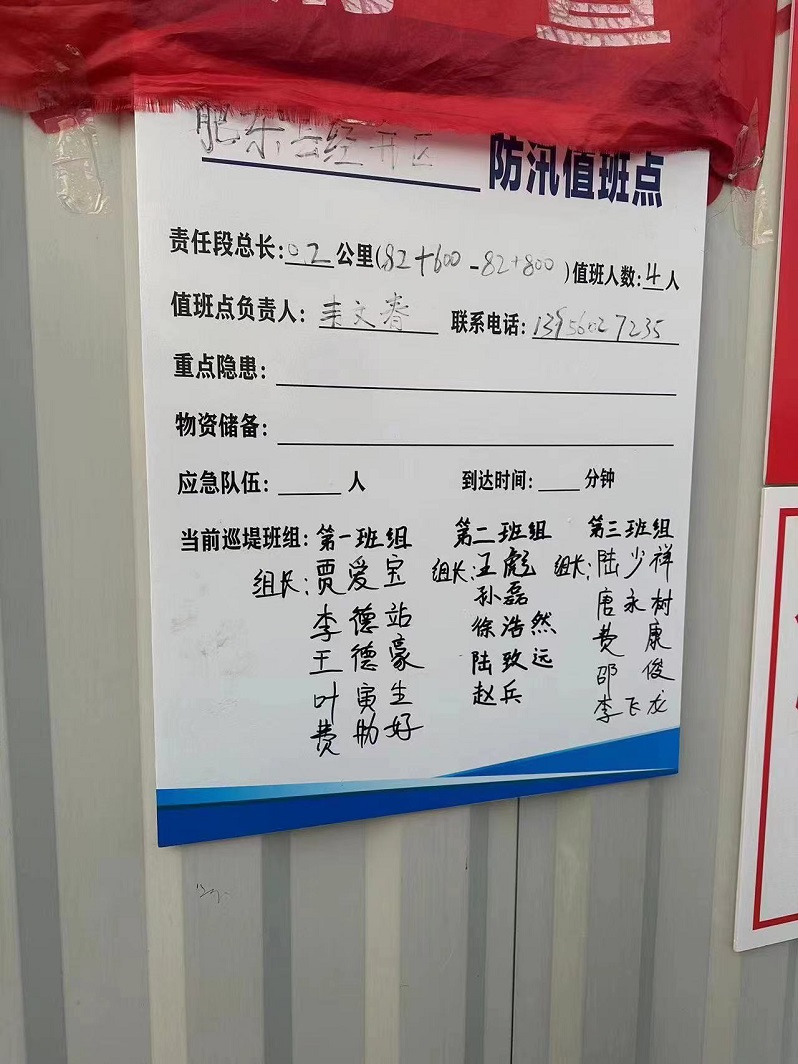 肥东县经开区 防汛值班点
责任段总长:0.2公里(82+600-82+800)值班人数:4人
值班点负责人: 文春 联系电话:13956027235
重点隐患:
物资储备:
应急队伍: 人 到达时间: 分钟
当前巡堤班组: 第一班组 第二班组 第三班组
组长:贾爱宝 组长:王彪 组长:陆少祥
孙磊 唐永树
李德站 徐浩然 费康
王德豪 陆致远 邵俊
叶寅生 赵兵 李飞龙
费助好